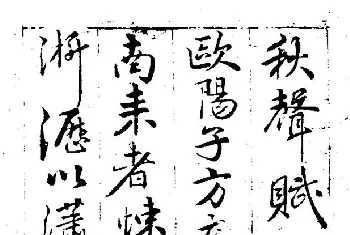 秋聲賦
歐陽子方
南来者悚
淅瀝以瀟